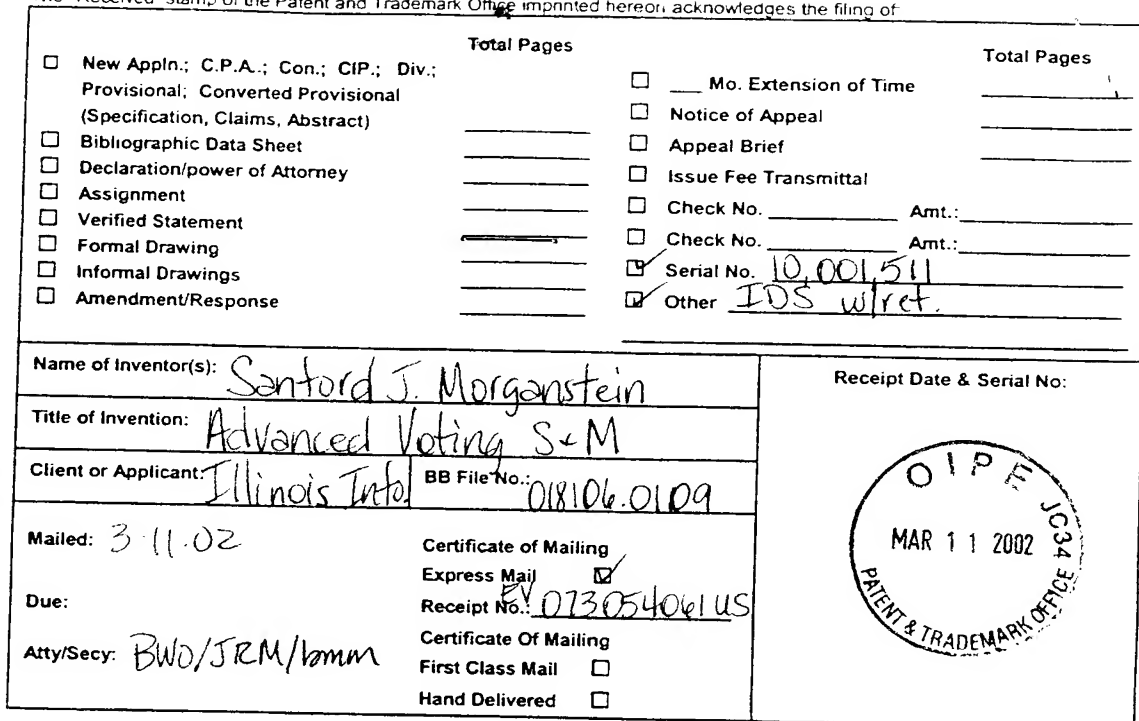 "Received" stamp of the Patent and Trademark Office imprinted hereon acknowledges the filing of
Total Pages
New Appln.; C.P.A.; Con.; CIP.; Div.;
Provisional; Converted Provisional
(Specification, Claims, Abstract)
Bibliographic Data Sheet
Declaration/power of Attorney
Assignment
Verified Statement
Formal Drawing
Informal Drawings
Amendment/Response
Total Pages
___ Mo. Extension of Time
Notice of Appeal
Appeal Brief
Issue Fee Transmittal
Check No. __________ Amt.:
Check No. __________ Amt.:
Serial No. 10,001,511
Other IDS w/ref.
Name of Inventor(s): Sanford J. Morganstein
Title of Invention: Advanced Voting S&M
Client or Applicant: Illinois Info.
BB File No.: 018106.0109
Mailed: 3-11-02
Due:
Atty/Secy: BWO/JRM/bmm
Certificate of Mailing
Express Mail
Receipt No.: EV 073054061 US
Certificate Of Mailing
First Class Mail
Hand Delivered
Receipt Date & Serial No:
OIPE JC34
MAR 11 2002
PATENT & TRADEMARK OFFICE